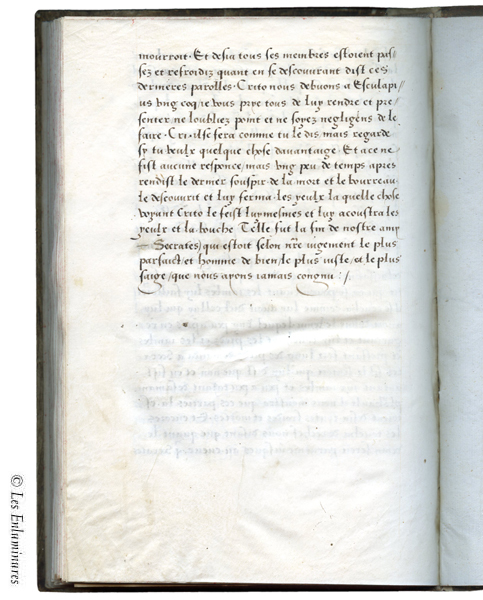 mourroit. Et desia tous ses membres estoient pas/
sez et refroidiz quant en se descouurant dist ces
dernieres parolles. Crito nous debuons a Esculapi/
us vng coq ie vous prye tous de luy rendre et pre/
senter ne loubliez point et ne soyez negligens de le
faire. Cri. il se sera comme tu le dis mais regarde
sy tu veulx quelque chose dauantaige. Et a ce ne
fist aucune responce, mais vng peu de temps apres
rendist le dernier souspir de la mort et le bourreau
le descouurit et luy ferma les yeulx la quelle chose
voyant Crito le feist luymesmes et luy acoustra les
yeulx et la bouche Telle fut la fin de nostre amy
Socrates/ qui estoit selon nr̃e iugement le plus
parfaict/ et homme de bien/ le plus iuste/ et le plus
saige/ que nous ayons iamais congnu : /.
© Les Enluminures